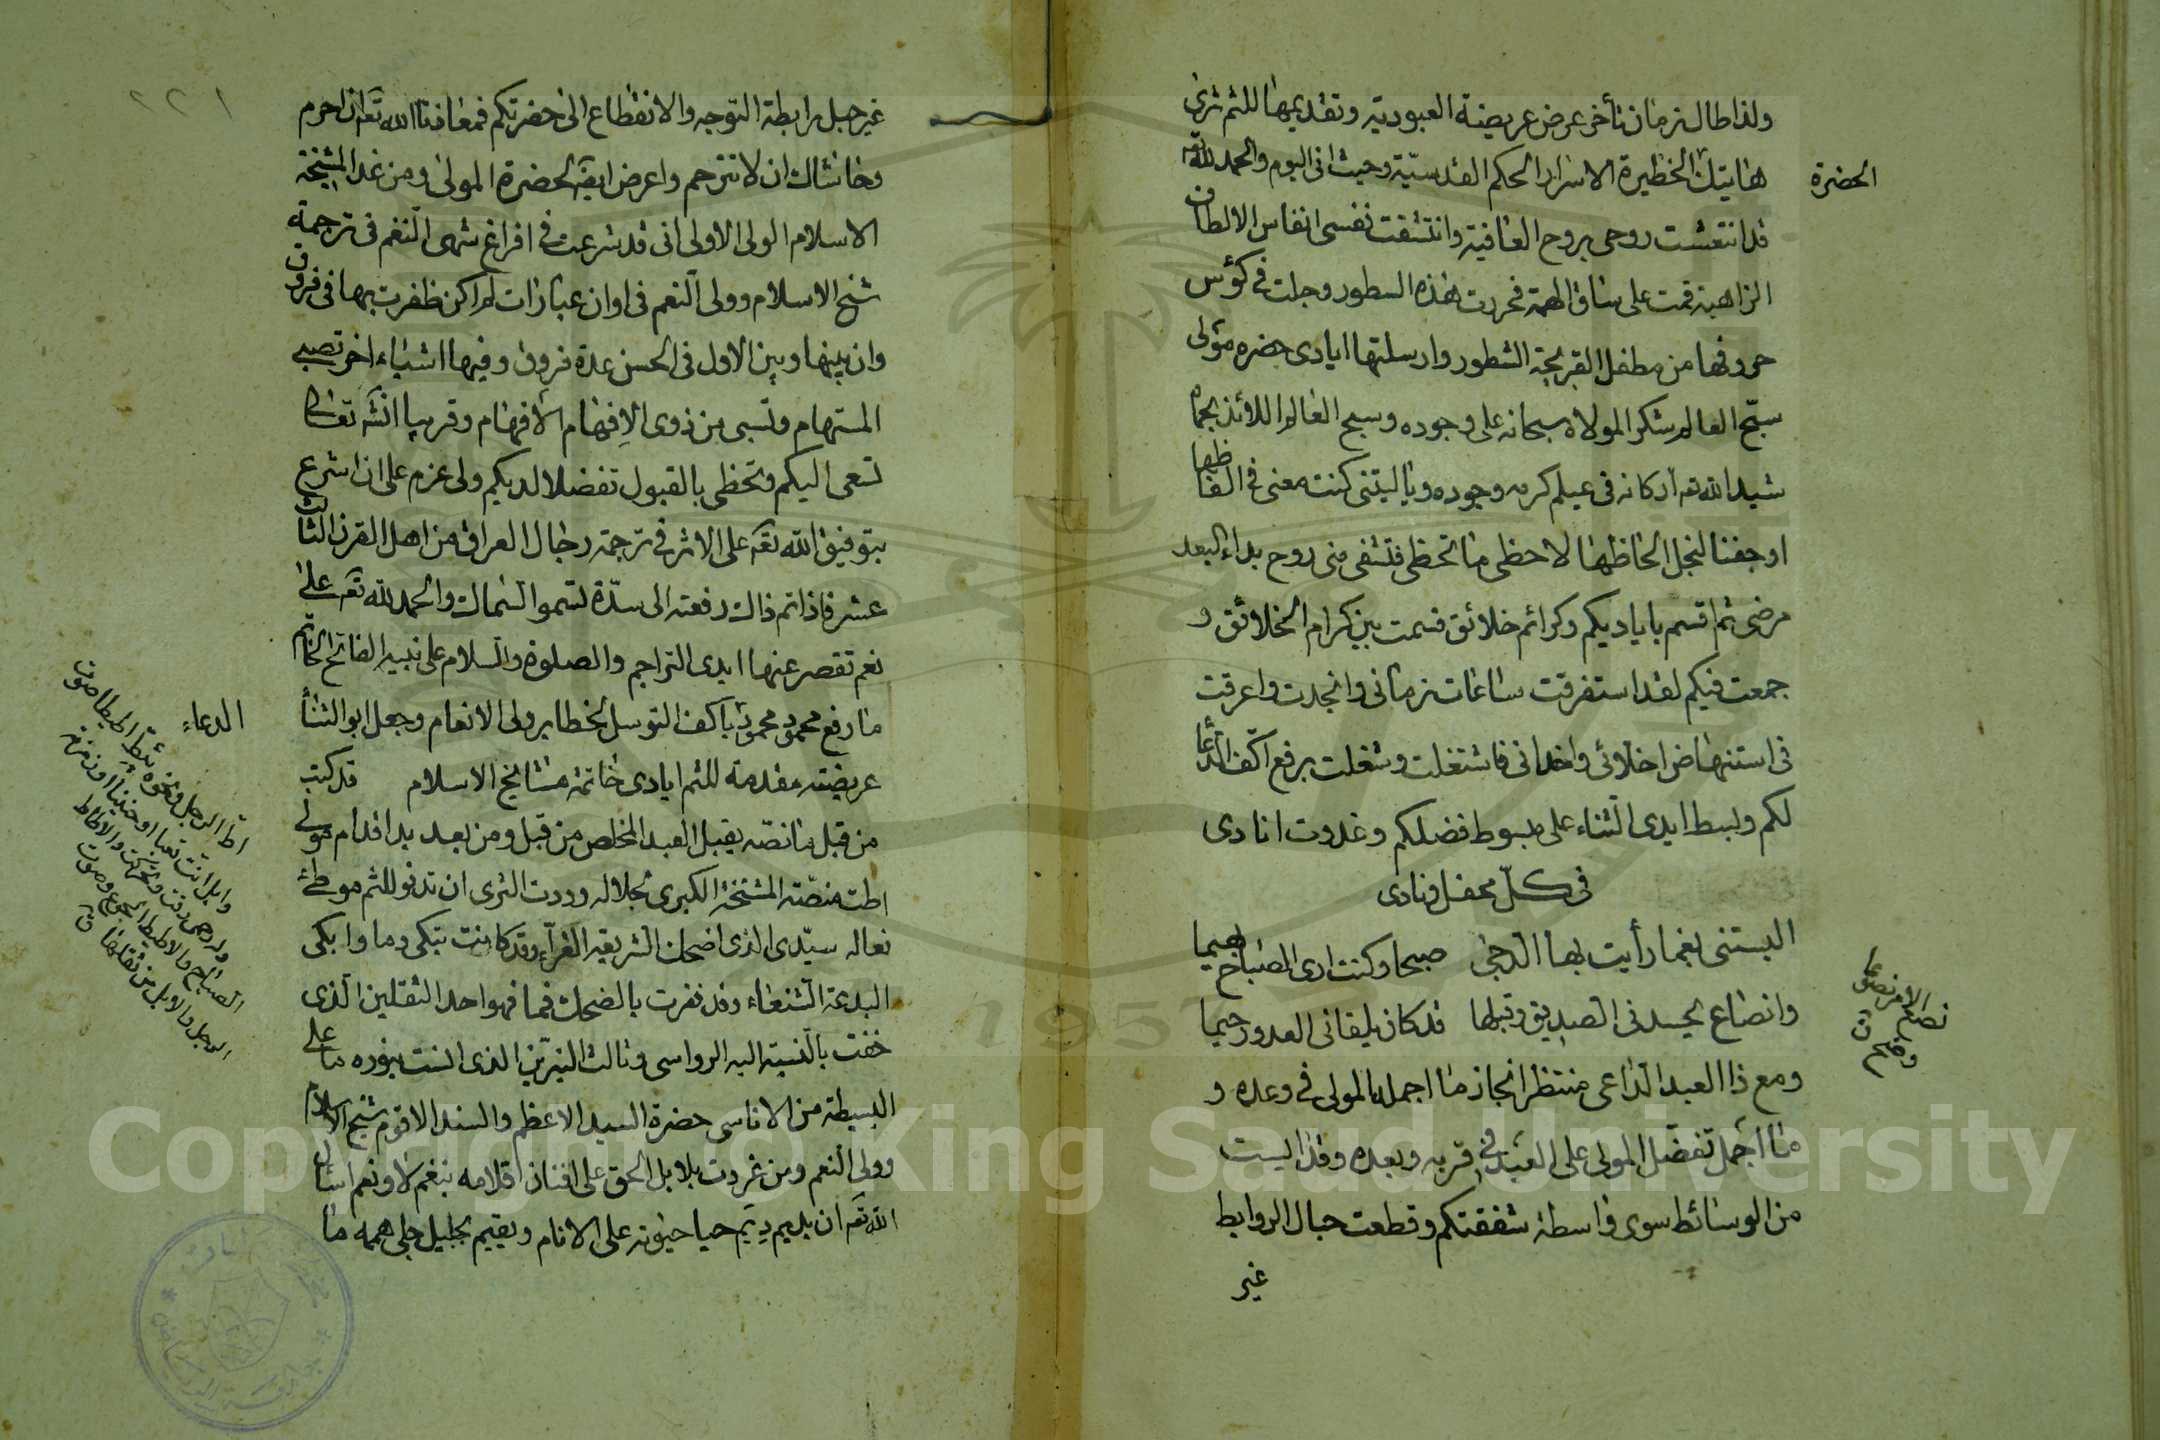 ولذا طال زمان تأخر عرض عريضة العبودية وتقديمها للثم ثرى
هاتيك الخطيرة الاسرار الحكم القدسيّة وحيث انى اليوم والحمد لله تعه
الحضرة
قد انتعشت روحى بروح العافية وانتشقت نفسى انفاس الالطاف
الزاهية قمت على ساق الهمة فحررت هذه السطور وجلت فى كؤس
حروفها من مطفل القريحة الشطور وارسلتها ايادى حضره مولى
سبّح العالم شكر المولاه سبحانه على وجوده وسبح العالم اللائذ بحماه
شيد الله تعه اركانه فى عيلم كرمه وجوده ويا ليتنى كنت معنى فى الفاظها
او جفنا لنجل الحاظها لاحظى ما تحظى فتشفى منى روح بداء البعد
مرضى ثم اقسم باياديكم وكرائم خلائق قسمت بين كرام الخلائق و
جمعت فيكم لقد استفرقت ساعات زمانى وانجدت واعرقت
فى استنهاض اخلائى واخدانى فاشتغلت وشغلت برفع اكف الدعا
لكم وبسط ايدى الثناء على مبسوط فضلكم وغدوت انادى
فى كلّ محفل ونادى
البستنى نعما رأيت بها الدجى صبحا وكنت ارى الصباح بهيما
وانصاع يحسدنى الصديق وقبلها قد كان يلقانى العدو رحيما
ومع ذا العبد الداعى منتظر انجاز ما اجمله المولى فى وعده و
ما اجمل تفضّل المولى على العبد فى قربه وبعده وقد ايست
من الوسائط سوى واسطة شفقتكم وقطعت حبال الروابط
غير
١٢٢
غير حبل رابطة التوجه والانقطاع الى حضرتكم فمعاذ الله تعه ان احرم
وحاشاك ان لا تترحم واعرض ايضا لحضرة المولى ومن غدا لمشيخة
الاسلام الولى الاولى انى قد شرعت فى افراغ شهى النغم فى ترجمة
شيخ الاسلام وولى النعم فى اوان عبارات لم اكن ظفرت بها فى فروق
وان بينها وبين الاول فى الحسن عدة فروق وفيها اشياء اخر تصبى
المستهام وتسبى من ذوى الافهام الافهام وقريبا انشه تعالى
تسعى اليكم وتحظى بالقبول تفضلا لديكم ولى عزم على ان اشرع
بتوفيق الله تعه على الاثر فى ترجمة رجال العراق من اهل القرن الثالث
عشر فاذا تم ذاك رفعته الى سدّة تسموا السماك والحمد لله تعه على
نعم تقصر عنها ايدى التراجم والصلوة والسلام على نبيه الفاتح الخاتم
ما رفع محمود محمود باكف التوسل لخطاير ولى الانعام وجعل ابو الثنأ
الدعاء
عريضته مقدمة للثم ايادى خاتمة مشايخ الاسلام قد كتب
من قبل ما نصّه يقبل العبد المخلص من قبل ومن بعد يد اقدام مولى
اطت منصّته المشيخة الكبرى لجلاله وودت الثرى ان تدنو للثم موطئ
نعاله سيّدى الذى اضحك الشريعة الغرّآء وقد كانت تبكى دما وابكى
البدعة الشنعاء وقد فغرت بالضحك فما فهو احد الثقلين الذى
خفت بالنسبة اليه الرواسى وثالث النيّرين الذى انست بنوره ما على
البسيطة من الاناسى حضرة السيد الاعظم والسند الاقوم شيخ الاسلام
وولى النعم ومن غردت بلابل الحق على افنان اقلامه بنغم لا ونعم اسأل
الله تعه ان يديم ديم حيا حيوته على الانام ويقيم بجليل جلى هممه ما